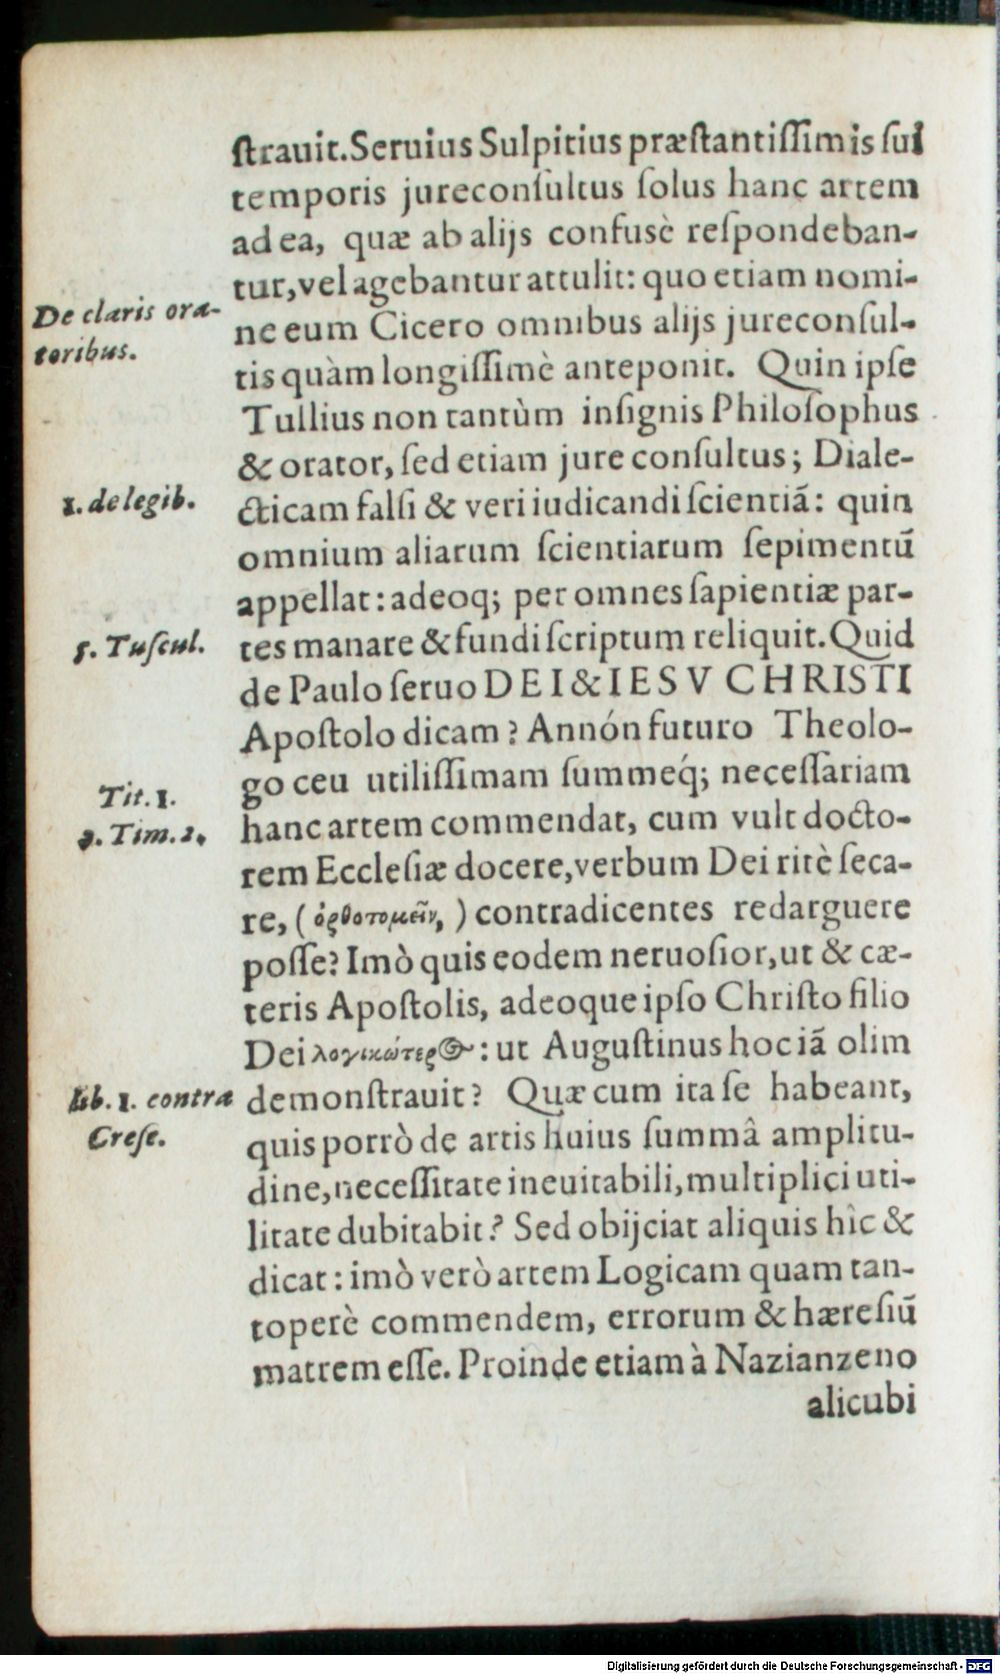 ſtrauit. Seruius Sulpitius præſtantiſſimis ſui
temporis jureconſultus ſolus hanc artem
ad ea, quæ ab alijs confusè reſpondeban-
tur, vel agebantur attulit: quo etiam nomi-
De claris ora-
toribus.
ne eum Cicero omnibus alijs jureconſul-
tis quàm longiſſimè anteponit. Quin ipſe
Tullius non tantùm inſignis Philoſophus
& orator, ſed etiam jure conſultus; Diale-
1. de legib.
cticam falſi & veri iudicandi ſcientiã: quin
omnium aliarum ſcientiarum ſepimentũ
appellat: adeoq; per omnes ſapientiæ par-
5. Tuſcul.
tes manare & fundi ſcriptum reliquit. Quid
de Paulo ſeruo DEI & IESV CHRISTI
Apoſtolo dicam? Annón futuro Theolo-
go ceu utiliſſimam ſummeq́; neceſſariam
Tit. 1.
2. Tim. 2.
hanc artem commendat, cum vult docto-
rem Eccleſiæ docere, verbum Dei ritè ſeca-
re, (ὀρθοτομεῖν,) contradicentes redarguere
poſſe? Imò quis eodem neruoſior, ut & cæ-
teris Apoſtolis, adeoque ipſo Chriſto filio
Dei λογικώτερος: ut Auguſtinus hoc iã olim
lib. 1. contra
Creſc.
demonſtrauit? Quæ cum ita ſe habeant,
quis porrò de artis huius ſummâ amplitu-
dine, neceſſitate ineuitabili, multiplici uti-
litate dubitabit? Sed obijciat aliquis hîc &
dicat: imò verò artem Logicam quam tan-
toperè commendem, errorum & hæreſiũ
matrem eſſe. Proinde etiam à Nazianzeno
alicubi
Digitalisierung gefördert durch die Deutsche Forschungsgemeinschaft - DFG